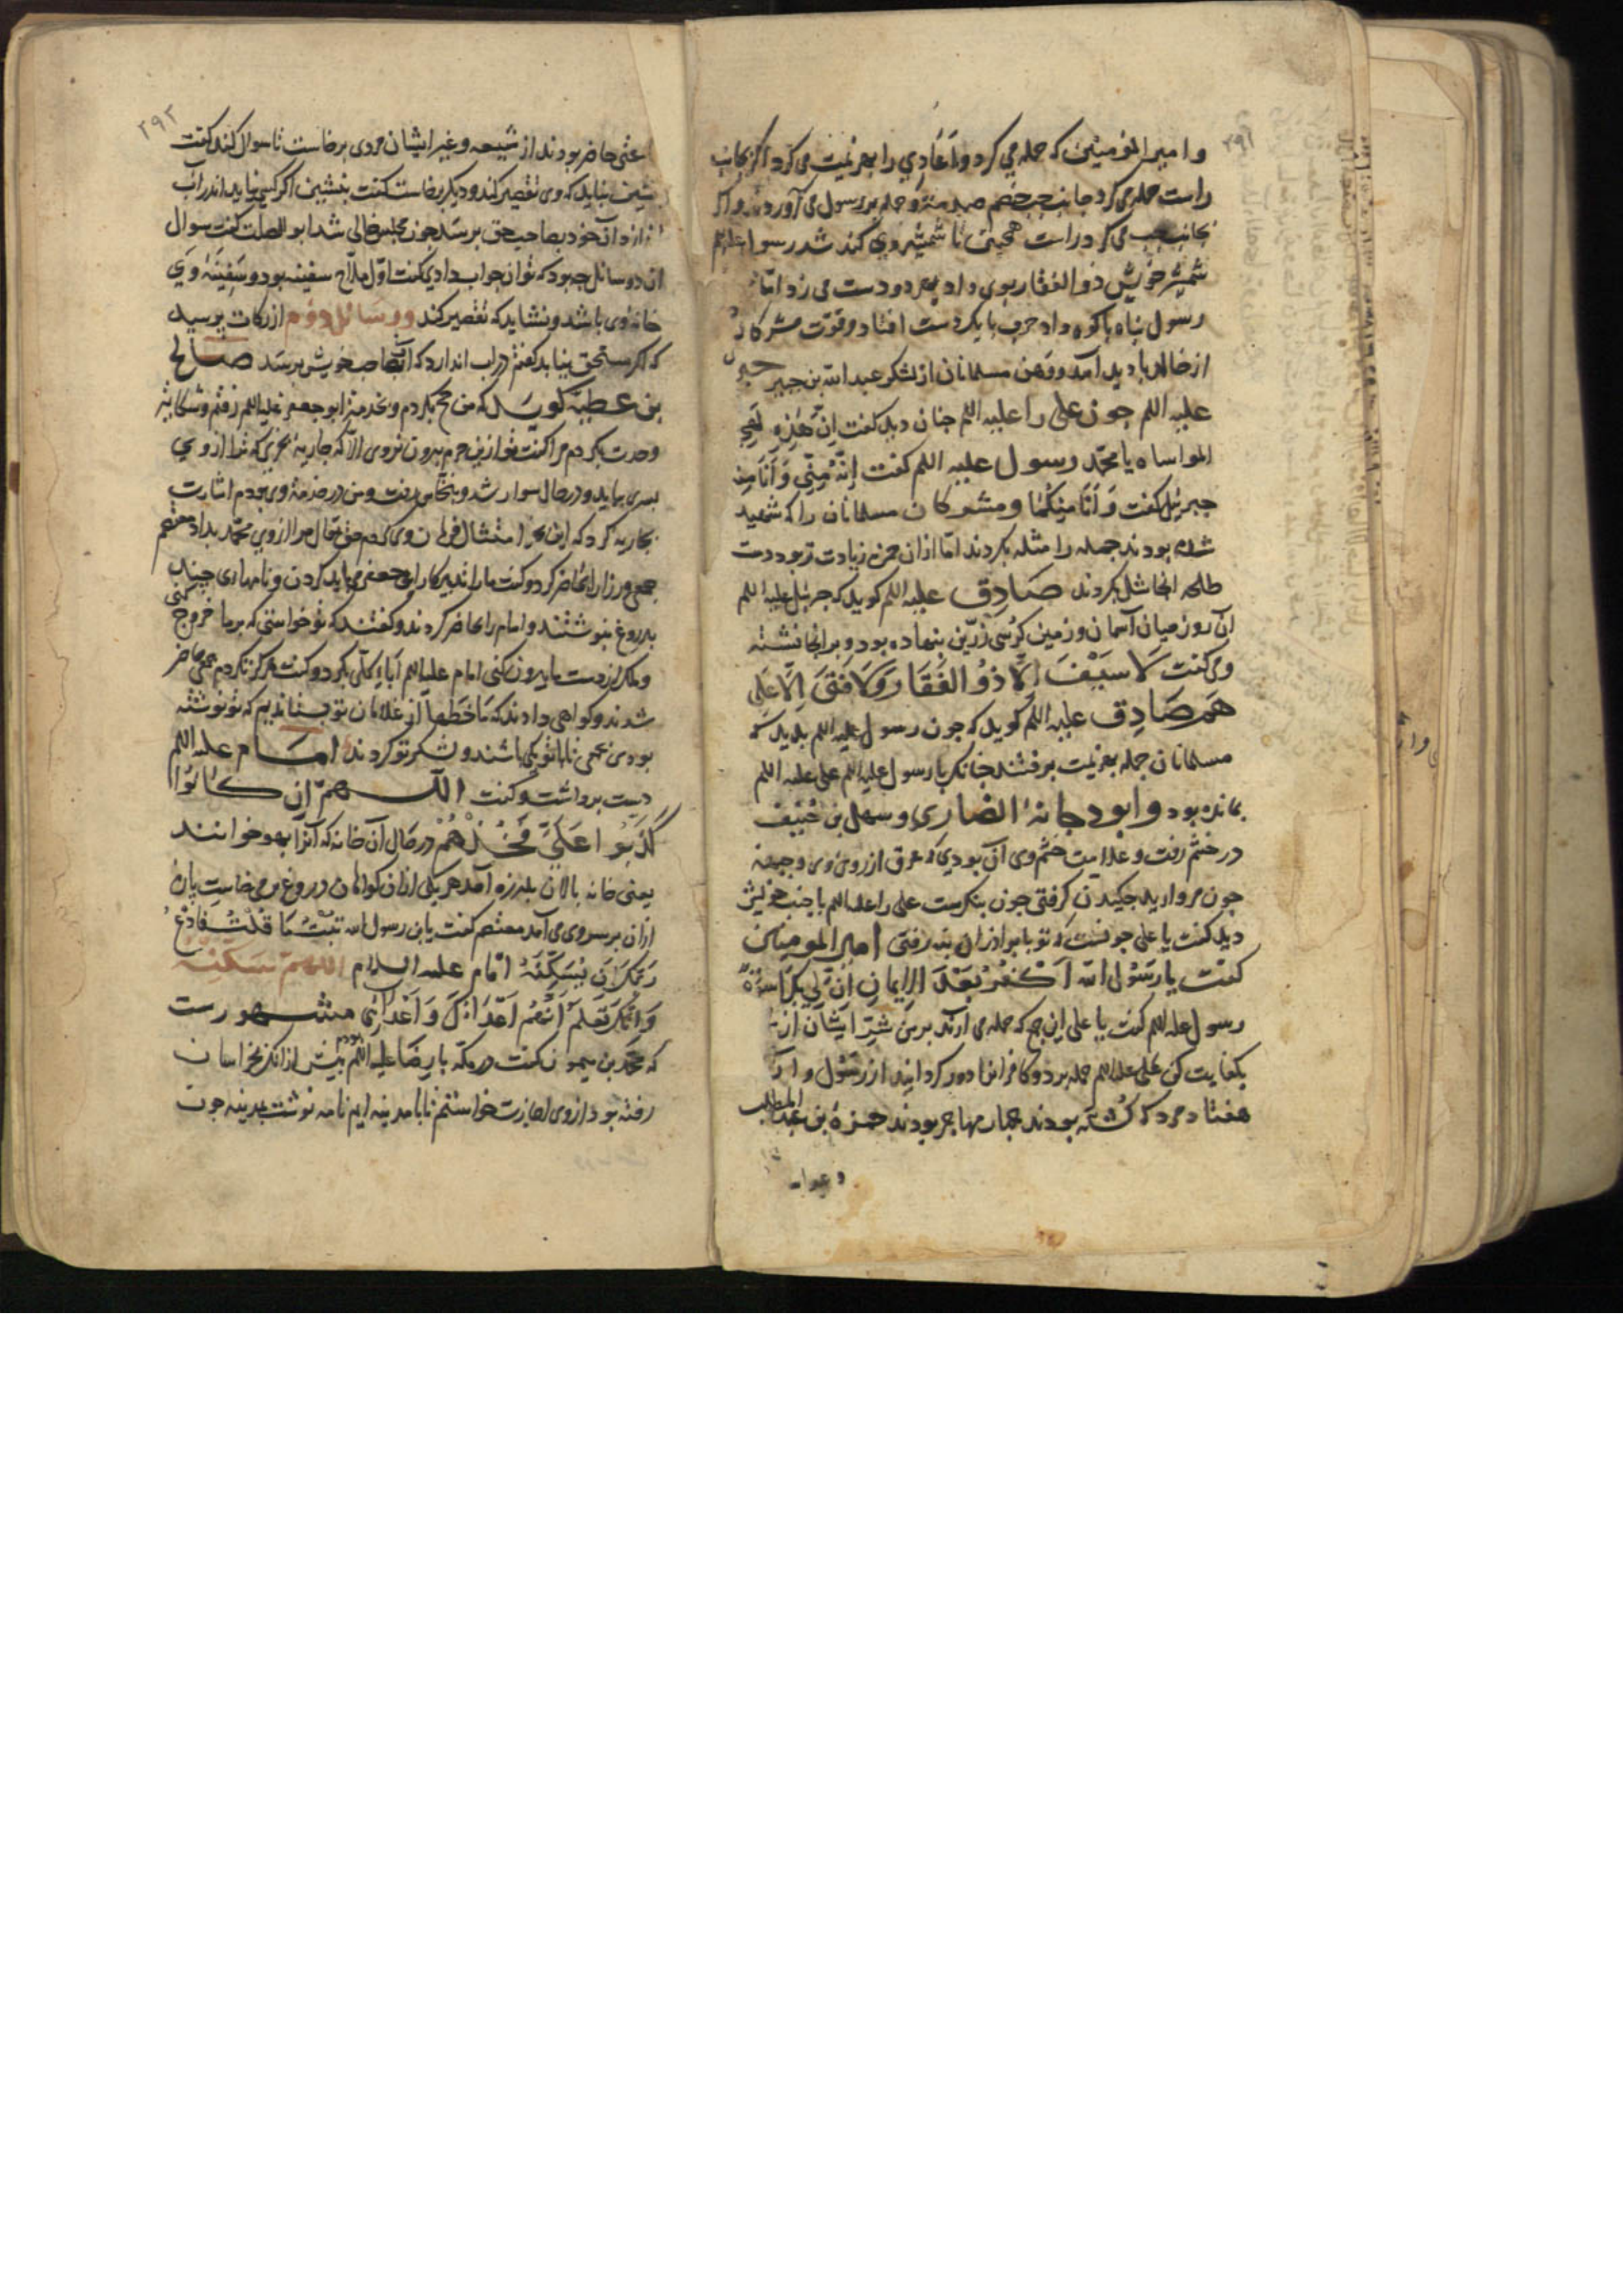 ۲۹۱
وامیر المؤمنین که حمله می کرد و اَعادی را بهزیمت می کرد اکر بجانب
راست حمله می کرد جانب جب خصم حمله بر رسول می آوردند و اکر
بجانب جب می کرد راست همجنین تا شمشیر وی کند شد رسول علیه‌اللم
شمشیر خویش ذو الفقار بوی داد بهر دو دست می زد امّا
رسول بناه باکوه داد حرب با یکدست افتاد و قوّت مشرکان
از خالد بادید آمد و وهن مسلمانان از لشکر عبد الله بن جبیر جبریل
علیه اللم جون علی را علیه اللم جنان دید کفت اِنّ هٰذِه لَهِیَ
المواساه یا محمّد رسول علیه اللم کفت اِنّهُ مِنّی وَ اَنَا مِنه
جبریل کفت وَ اَنَا مِنکُما و مشرکان مسلمانان را که شهید
شده بودند جمله را مثله بکردند امّا ازان حمزه زیادت تر بود دست
طلحه انجا شل کردند صَادِق علیه اللم کوید که جبرئیل علیه اللم
آن روز میان آسمان و زمین کرسی زرّین بنهاده بود و برانجا نشسته
و می کفت لَا سَیْفَ اِلّا ذُو الفَقَار وَ لَا فَتیَ اِلّا عَلی
هَم صَادِق علیه اللم کوید که جون رسول علیه اللم بدید که
مسلمانان جمله بهزیمت برفتند جنانکه با رسول علیه اللم علی علیه اللم
بمانده بود و ابو دجانهٔ انصاری و سهل بن حُنَیف
در خشم رفت و علامت خشم وی آن بودی که عرق از روی وی و جبهه
جون مروارید جکیدن کرفتی جون بنکرست علی را علیه اللم با جنب خویش
دید کفت یا علی جونست که تو با برادران بنه رفتی امیر المومنین
کفت یا رَسُول الله اَکْفُرُ بَعْدَ الاِیمانِ اِنّ لی بِکَ اُسْوَةً
رسول علیه اللم کفت یا علی این جمع که حمله می آرند بر من شرّ ایشان از من
بکفایت کن علی علیه اللم حمله برد و کافرانرا دور کردانید از رسول و از
هفتاد مرد که کُشته بودند جهار مهاجر بودند حمزهٔ بن عبد المطلب
۲۹۲
حاضر بودند از شیعه و غیر ایشان مردی برخاست تا سوال کند کفت
بنشین نباید که وی تقصیر کند و دیکر برخاست کفت بنشین اکر کسی نیابد اندر آب
اندازد آن خود بصاحب حق برسد جون مجلس خالی شد ابو الصلت کفت سوال
ان دو سائل جه بود که تو ان جواب دادی کفت اوّل ملّاح سفینه بود و سفینهٔ وی
خانه وی باشد و نشاید که تقصیر کند و سَائل دوم از زکات برسید
که اکر مستحق نیابد کفتم در اب اندازد که آن بصاحب خویش برسد صالح
بن عطیّه کوید که من حج بکردم و بخدمت ابو جعفر علیه اللم رفتم و شکایت
وحدت بکردم مرا کفت تو ازین حرم بیرون نروی الّا که جاریه بخری که ترا از وی
بسری بیاید و در حال سوار شد و بنخاس رفت و من در خدمت وی بودم اشارت
بجاریه کرد که این بخر امتثال فرمان وی کردم حق تعالی مرا از وی محمّد بداد معتصم
جمعی وزرا را حاضر کرد و کفت ما را تدبیر کار ابو جعفر می باید کردن و نامهاری جند
بدروغ بنوشتند و امام را حاضر کردند و کفتند که تو خواستی که بر ما خروج کنی
و ملک از دست ما بیرون کنی امام علیه اللم اَباء کلّی بکرد و کفت هرکز نکردم جمعی حاضر
شدند و کواهی دادند که ما خطها از غلامان تو بستاندیم که تو نوشته
بودی بجمعی تا با تو یکی باشند و لشکر تو کردند امام علیه اللم
دست برداشت و کفت اللهُمّ اِن کَانُوا
کَذَبُوا عَلَیَّ فَخُذْهُم در حال آن خانه که آنرا بهو خوانند
یعنی خانه بالان بلرزه آمد هر یکی ازان کواهان دروغ برمی خاست باره
ازان بر سر وی می آمد معتصم کفت یابن رسول الله تُبْتُ مِمّا قُلْتُ فادْعُ
رَبّکَ اَن یُسَکِّنَهُ امام علیه السلام اللهمّ سَکِّنْهُ
وَ اِنّکَ تَعلَم اَنّهُم اَعْدَاءُکَ وَ اَعْدَائی مشهورست
که محمّد بن میمون کفت در مکّه با رضا علیه اللم بودم بیش از انکه بخراسان
رفته بود از وی اجازت خواستم تا بامدینه ایم نامه نوشت بمدینه جون